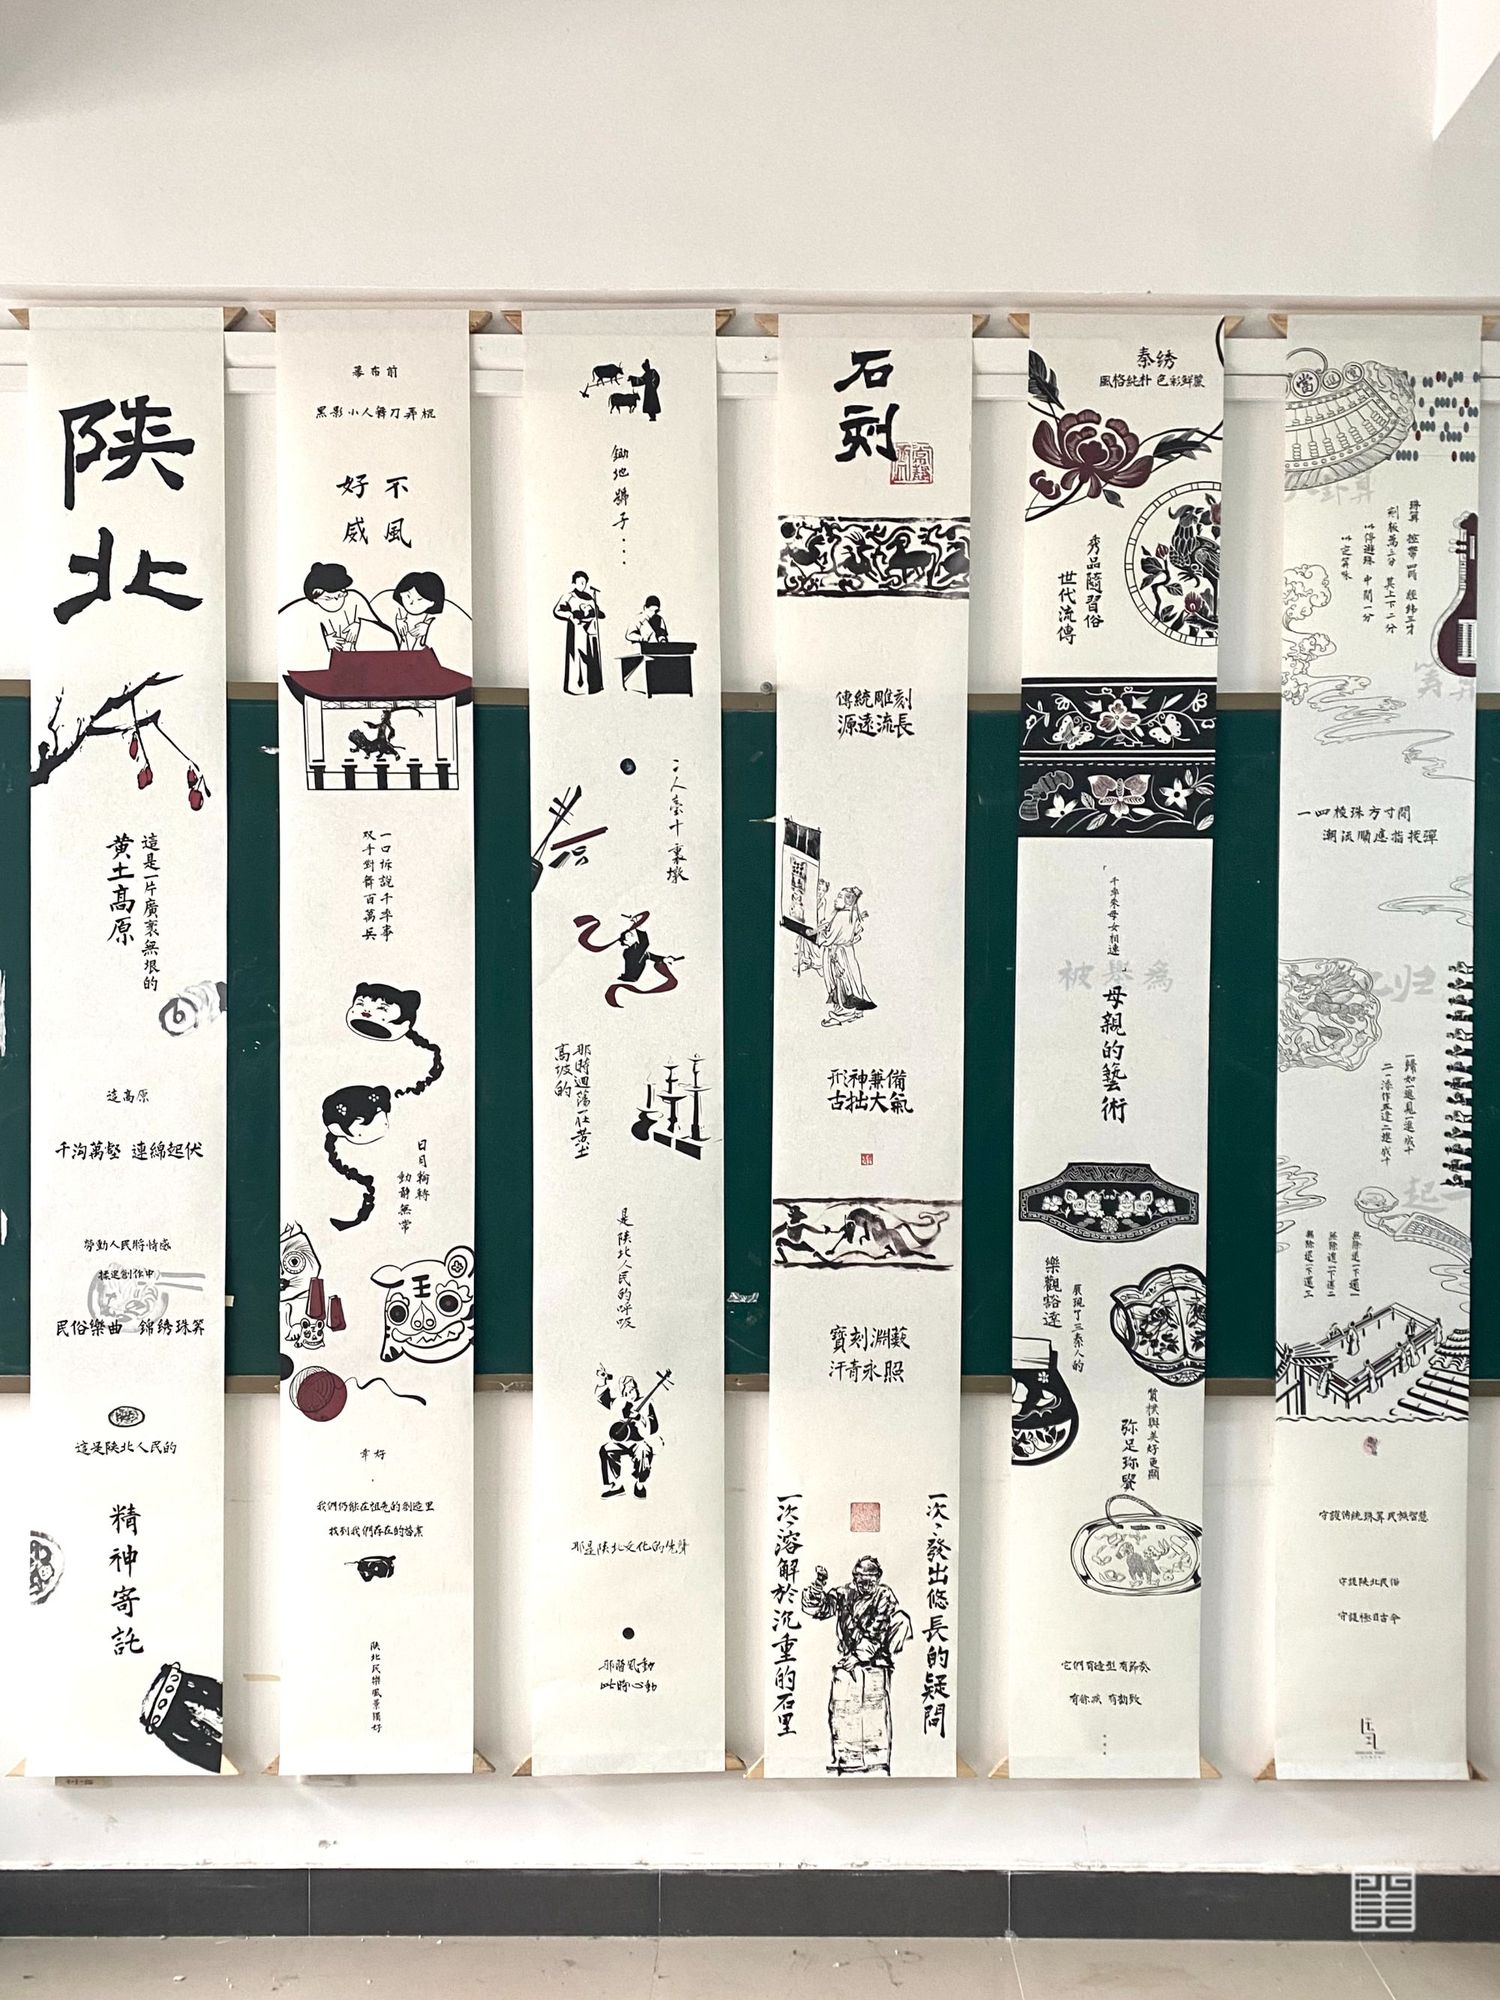 陕
北
這是一片廣袤無垠的
黄土高原
這高原
千沟萬壑 連綿起伏
勞動人民將情感
揉進創作中
民俗樂曲 錦绣珠算
這是陕北人民的
精神寄託
幕布前
黑影小人舞刀弄棍
好不
威風
一口訴說千年事
双手對舞百萬兵
日月輪轉
動静無常
王
幸好
我們仍能在祖先的創造里
找到我們存在的答案
陕北民樂風景獨好
鋤地號子...
二人臺十裏墩
那時迴蕩在黄土
高坡的
是陕北人民的呼吸
那是陕北文化的先聲
那時風動
此時心動
石
刻
傳統雕刻
源遠流長
形神兼備
古拙大氣
寶刻淵藪
汗青永照
一次次發出悠長的疑問
一次次溶解於沉重的石里
秦绣
風格純朴 色彩鮮麗
秀品隨習俗
世代流傳
千年來母女相連
被譽為
母親的藝術
展現了三秦人的
樂觀豁達
質樸與美好更顯
弥足珍贵
它們有造型 有節奏
當
珠算 控帶四時 經緯三才
刻板為三分 其上下二分
以停遊珠 中間一分
以定算味
一四棱珠方寸間
潮流順應指技彈
归
一歸如一進見一進成十
起一
無除退一下還一
無除退一下還二
無除退一下還三
守護傳統珠算民族智慧
守護陕北民俗